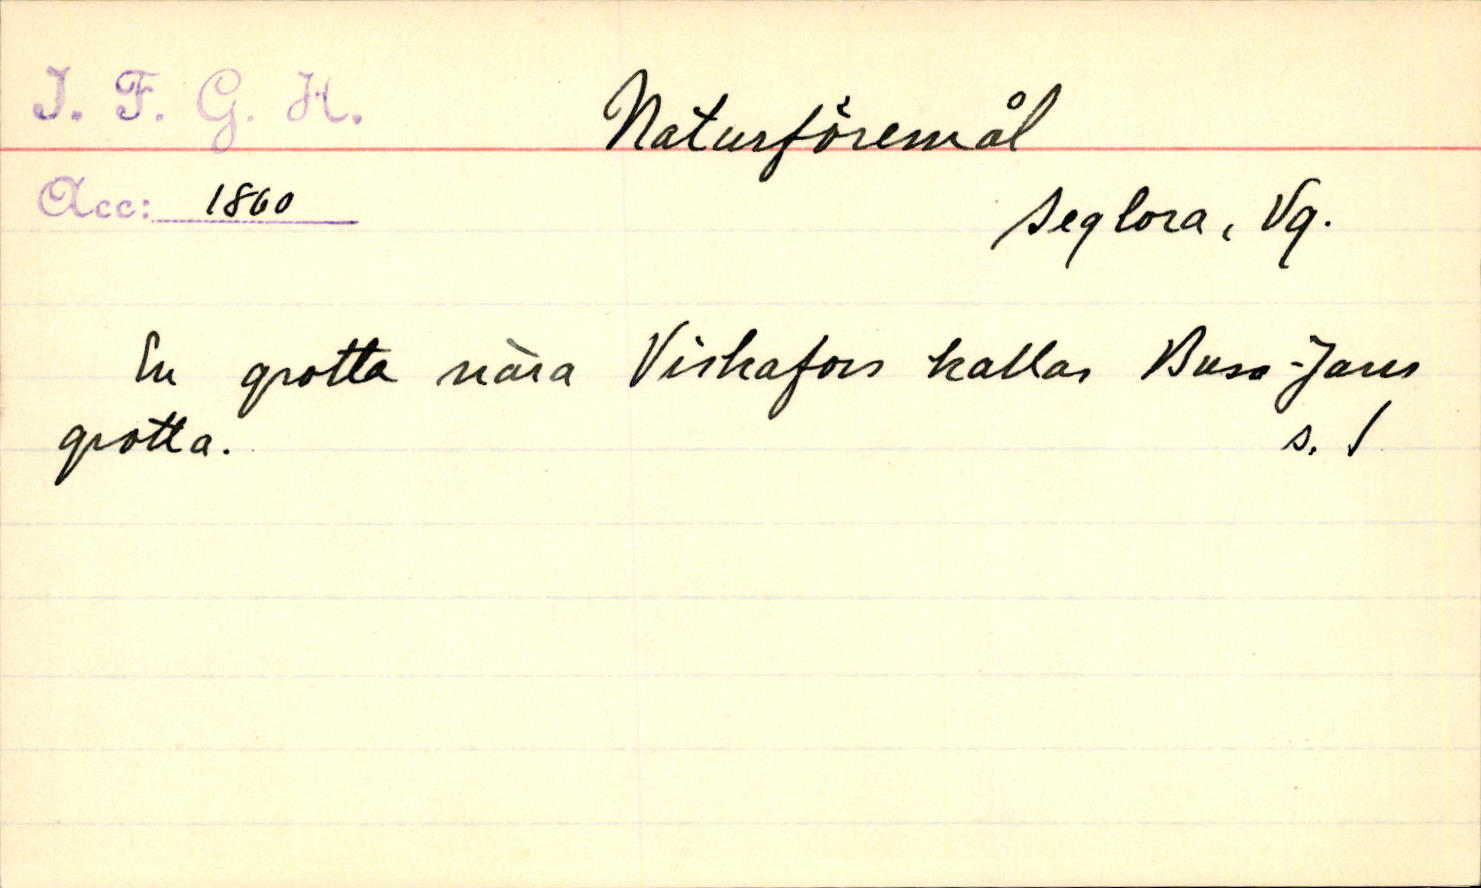 I. F. G. H.
Naturföremål
Acc: 1860
Seglora, Vg.
En grotta nära Viskafors kallas Buse-Jans
grotta.
s. 1